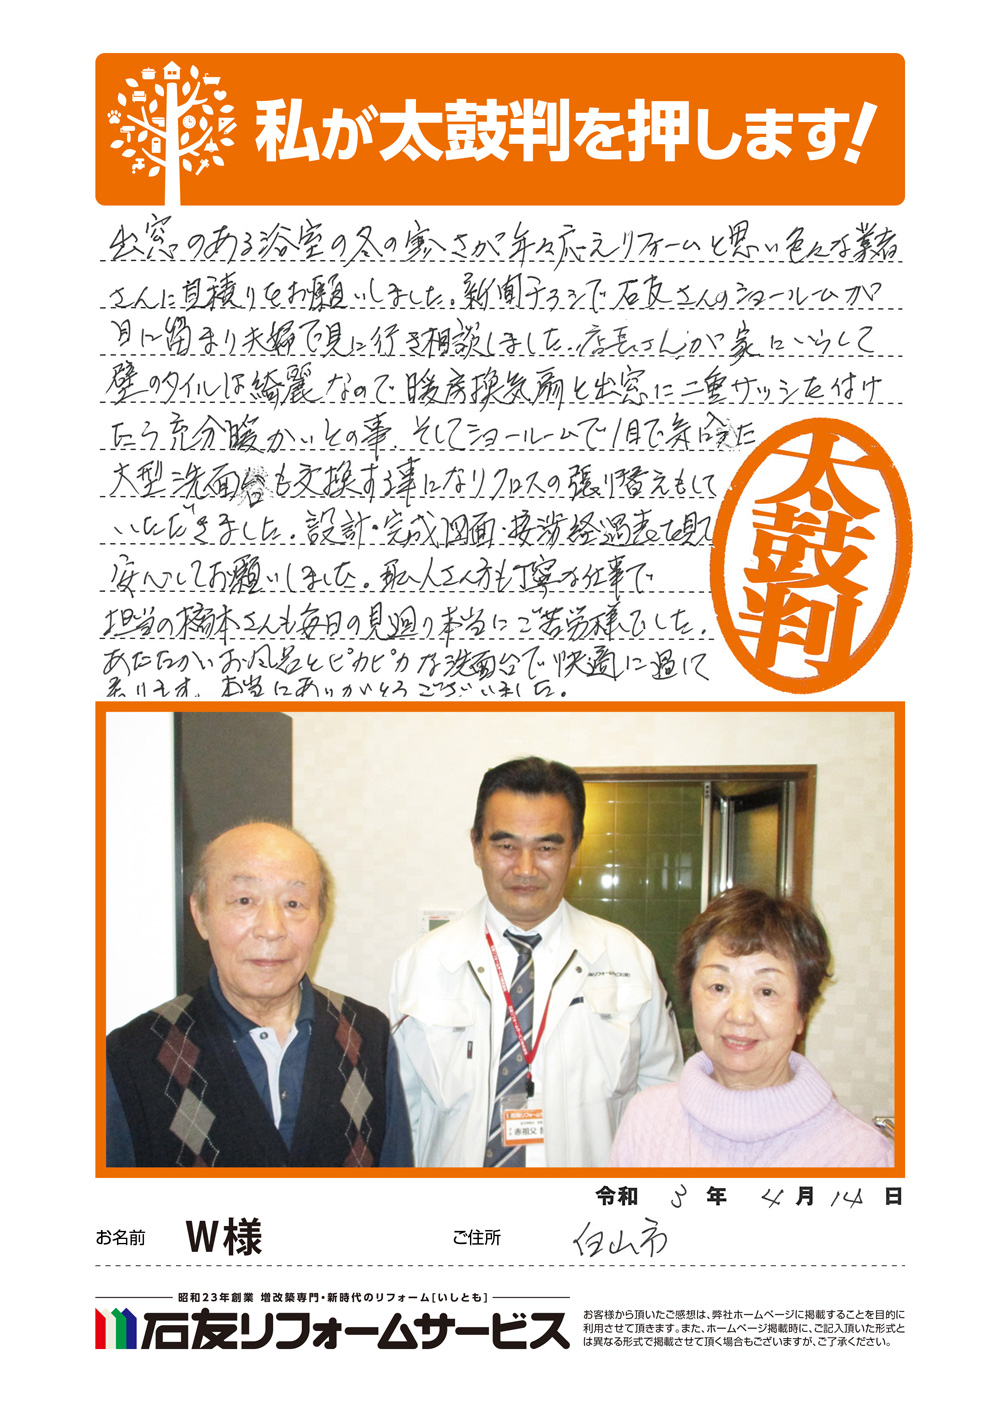 私が太鼓判を押します!
出窓のある浴室の冬の寒さが年々応えリフォームと思い色々な業者
さんに見積りをお願いしました。新聞チラシで石友さんのショールームが
目に留まり夫婦で見に行き相談しました。店長さんが家にいらして
壁のタイルは綺麗なので暖房換気扇と出窓に二重サッシを付け
たら充分暖かいとの事。そしてショールームで1目で気に入った
大型洗面台も交換する事になりクロスの張り替えもして
いただきました。設計・完成図面・接渉経過表を見て
安心してお願いしました。職人さん方も丁寧な仕事で
担当の橋本さんも毎日の見廻り本当にご苦労様でした。
あたたかいお風呂とピカピカな洗面台で快適に過して
おります。本当にありがとうございました。
太鼓判
石友リフォームサービス
赤祖父
令和 3 年 4 月 14 日
お名前 W様 ご住所 白山市
昭和23年創業 増改築専門・新時代のリフォーム[いしとも]
石友リフォームサービス
お客様から頂いたご感想は、弊社ホームページに掲載することを目的に
利用させて頂きます。また、ホームページ掲載時に、ご記入頂いた形式と
は異なる形式で掲載させて頂く場合もございますが、ご了承ください。